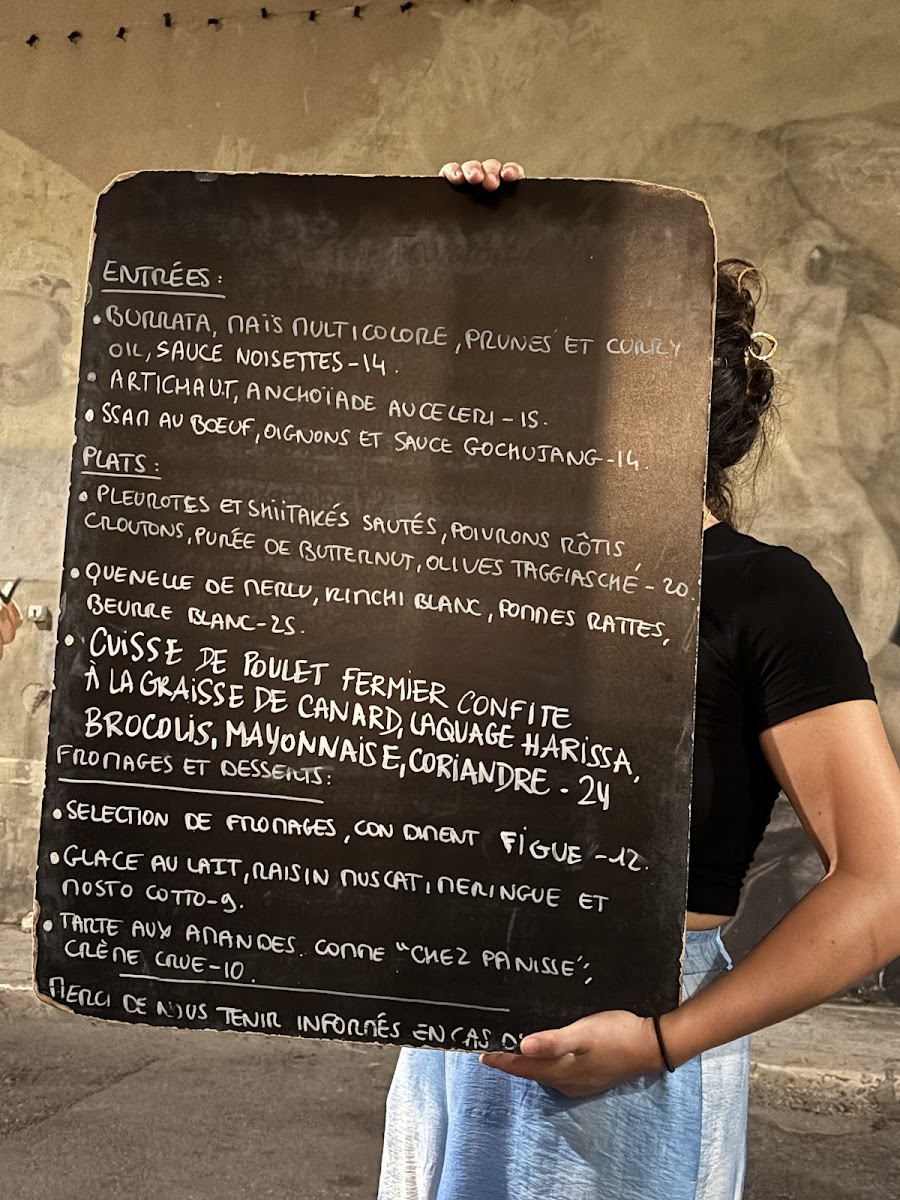 ENTRÉES:
• BURRATA, MAÏS MULTICOLORE, PRUNES ET CURRY
OIL, SAUCE NOISETTES-14.
• ARTICHAUT, ANCHOÏADE AU CELERI-15.
• SSAM AU BOEUF, OIGNONS ET SAUCE GOCHUJANG-14.
PLATS:
• PLEUROTES ET SHIITAKÉS SAUTÉS, POIVRONS RÔTIS
CROUTONS, PURÉE DE BUTTERNUT, OLIVES TAGGIASCHÉ-20.
• QUENELLE DE MERLU, KIMCHI BLANC, POMMES RATTES,
BEURRE BLANC-25.
• CUISSE DE POULET FERMIER CONFITE
À LA GRAISSE DE CANARD, LAQUAGE HARISSA,
BROCOLIS, MAYONNAISE, CORIANDRE - 24
FROMAGES ET DESSERTS:
• SELECTION DE FROMAGES, CONDIMENT FIGUE-12.
• GLACE AU LAIT, RAISIN MUSCAT, MERINGUE ET
MOSTO COTTO-9.
• TARTE AUX AMANDES. COMME "CHEZ PANISSE",
CRÈME CRUE-10.
MERCI DE NOUS TENIR INFORMÉS EN CAS D'